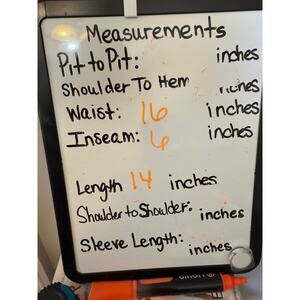 Measurements
Pit to Pit: inches
Shoulder To Hem inches
Waist: 16 inches
Inseam: 6 inches
Length 14 inches
Shoulder to Shoulder: inches
Sleeve Length: inches